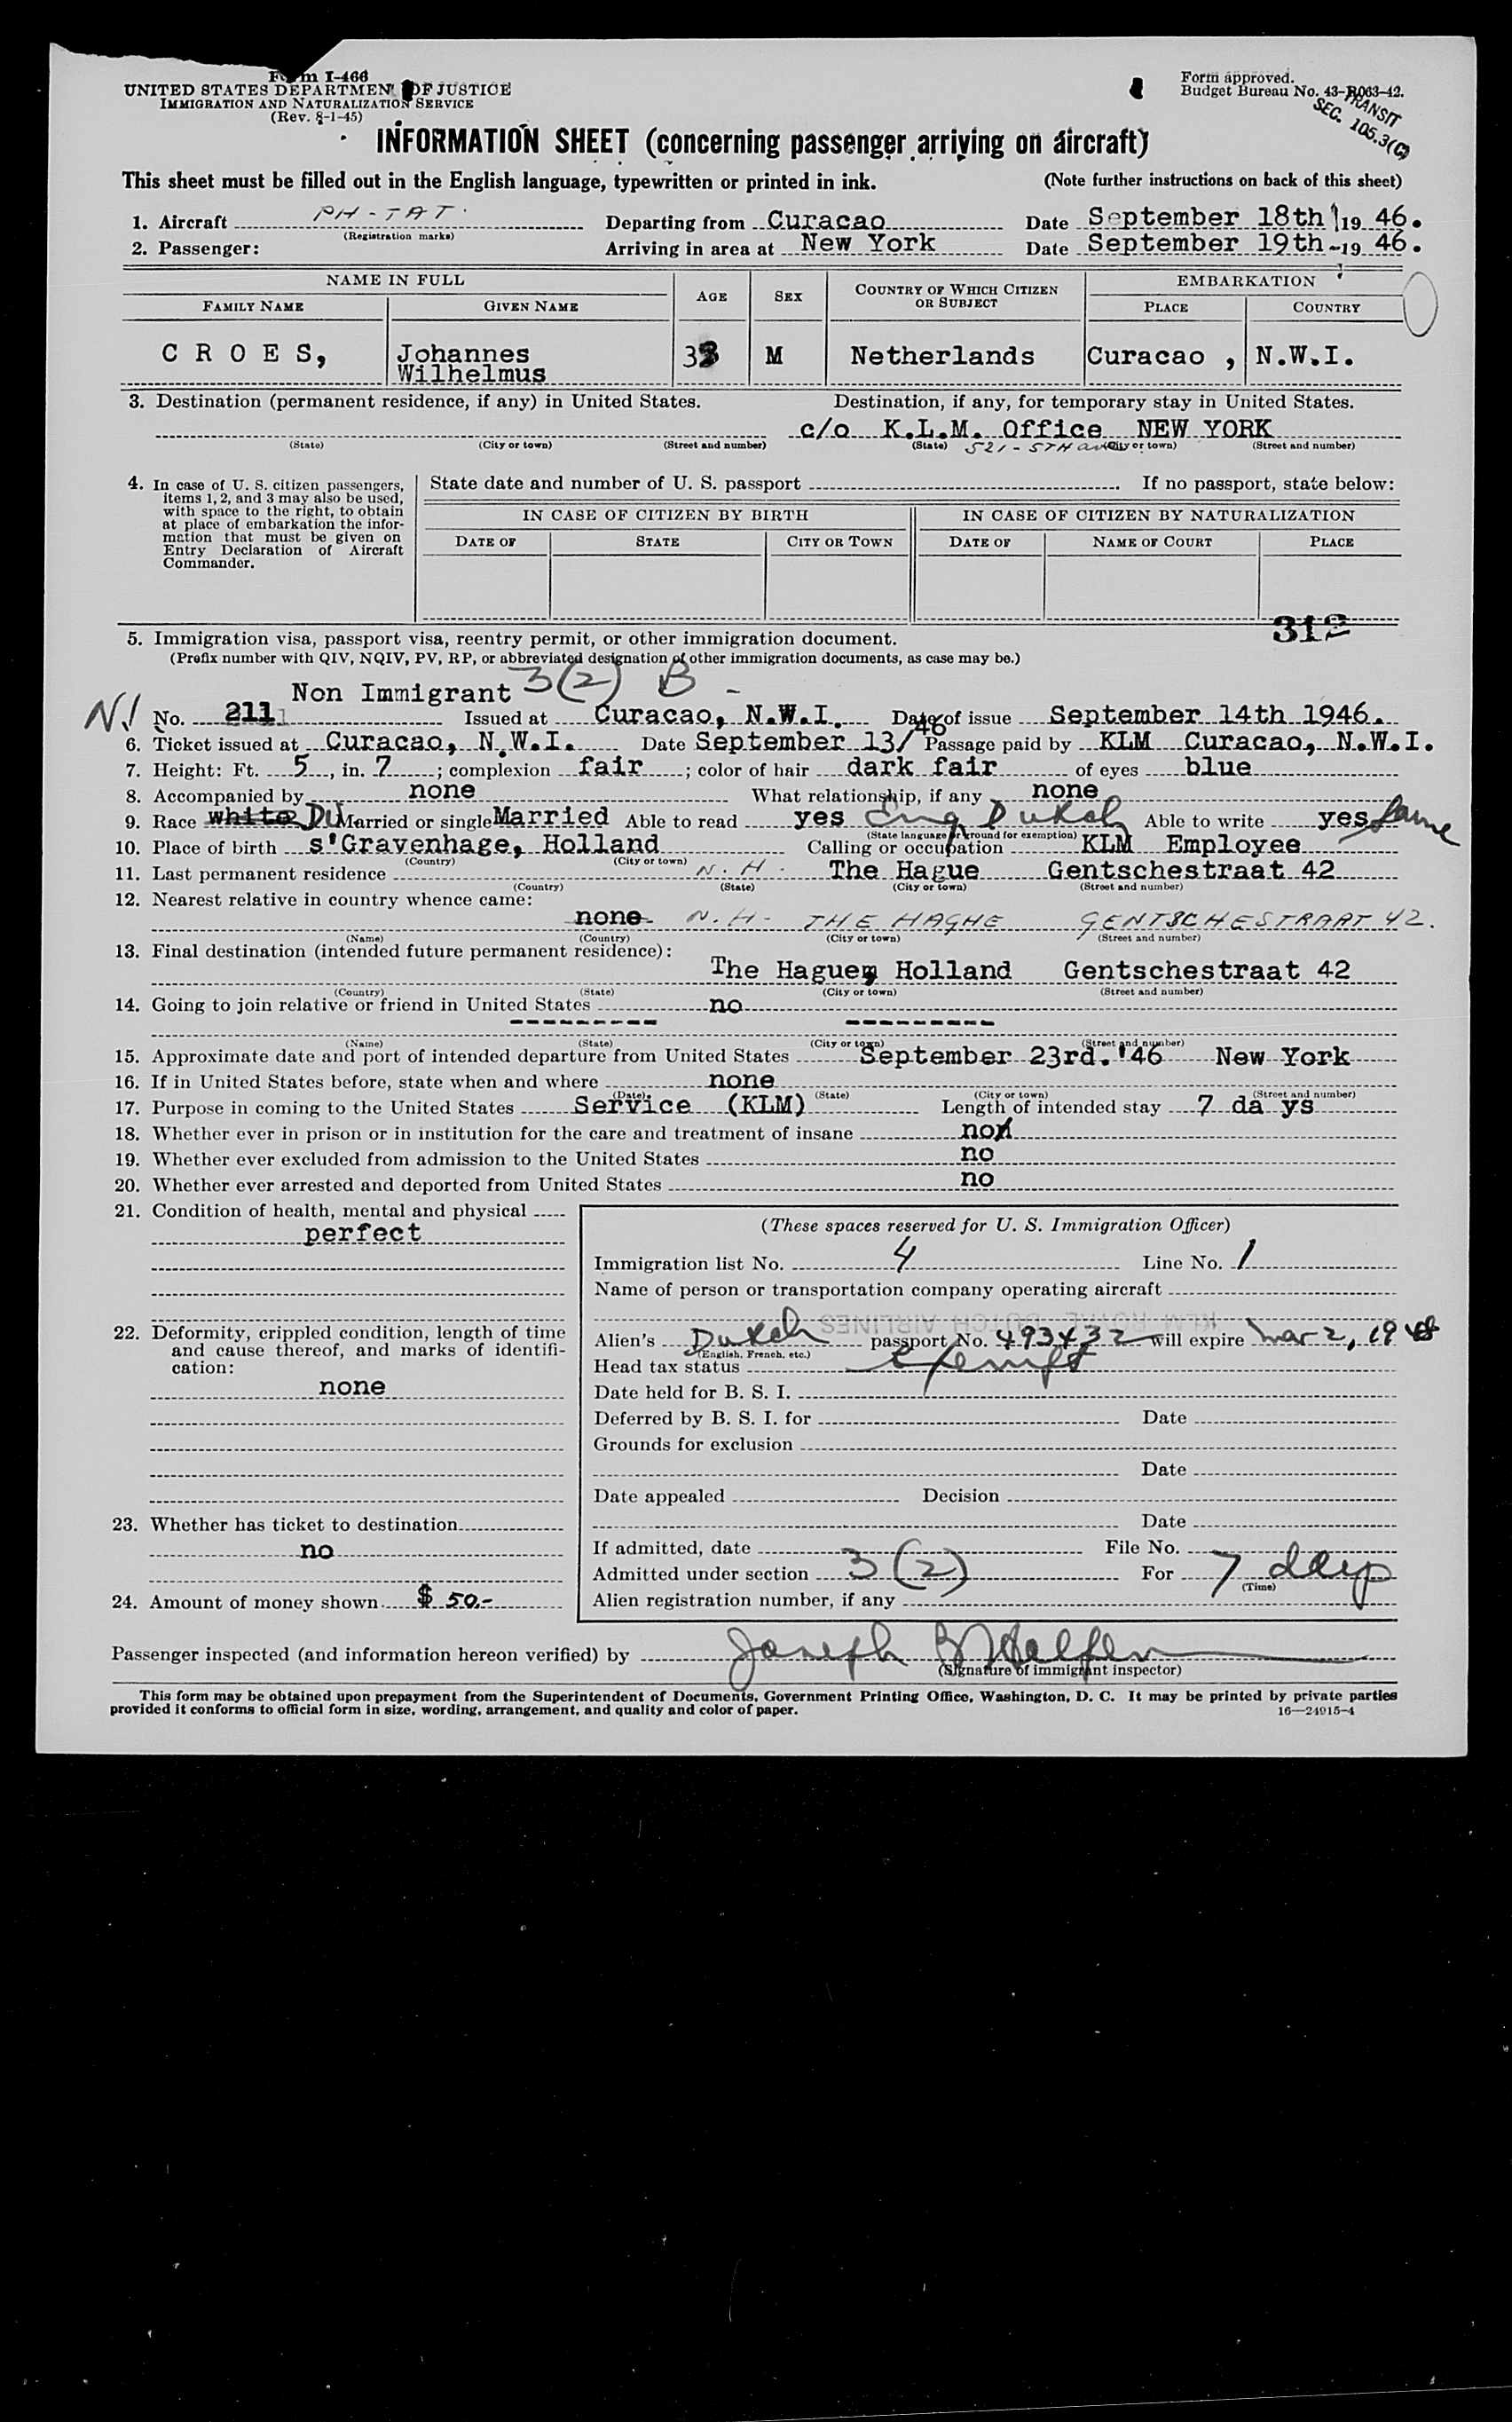 Form I-466
UNITED STATES DEPARTMENT OF JUSTICE
IMMIGRATION AND NATURALIZATION SERVICE
(Rev. 8-1-45)
Form approved.
Budget Bureau No. 43-R063-42.
TRANSIT
SEC. 105.3(C)
INFORMATION SHEET (concerning passenger arriving on aircraft)
This sheet must be filled out in the English language, typewritten or printed in ink. (Note further instructions on back of this sheet)
1. Aircraft PH-TAT. Departing from Curacao Date September 18th 19 46.
(Registration marks)
2. Passenger: Arriving in area at New York Date September 19th-19 46.
NAME IN FULL AGE SEX COUNTRY OF WHICH CITIZEN OR SUBJECT EMBARKATION
FAMILY NAME GIVEN NAME PLACE COUNTRY
C R O E S, Johannes Wilhelmus 33 M Netherlands Curacao , N.W.I.
3. Destination (permanent residence, if any) in United States. Destination, if any, for temporary stay in United States.
c/o K.L.M. Office NEW YORK
(State) (City or town) (Street and number) (State) 521-5TH (City or town) (Street and number)
4. In case of U. S. citizen passengers, items 1, 2, and 3 may also be used, with space to the right, to obtain at place of embarkation the information that must be given on Entry Declaration of Aircraft Commander.
State date and number of U. S. passport If no passport, state below:
IN CASE OF CITIZEN BY BIRTH IN CASE OF CITIZEN BY NATURALIZATION
DATE OF STATE CITY OR TOWN DATE OF NAME OF COURT PLACE
312
5. Immigration visa, passport visa, reentry permit, or other immigration document.
(Prefix number with QIV, NQIV, PV, RP, or abbreviated designation of other immigration documents, as case may be.)
Non Immigrant 3(2) B -
No. 211 Issued at Curacao, N.W.I. Date of issue September 14th 1946.
6. Ticket issued at Curacao, N.W.I. Date September 13/46 Passage paid by KLM Curacao, N.W.I.
7. Height: Ft. 5, in. 7; complexion fair; color of hair dark fair of eyes blue
8. Accompanied by none What relationship, if any none
9. Race white Du Married or single Married Able to read yes Eng Dutch Able to write yes Same
(State language or ground for exemption)
10. Place of birth s'Gravenhage, Holland Calling or occupation KLM Employee
(Country) (City or town)
11. Last permanent residence N.H. The Hague Gentschestraat 42
(Country) (State) (City or town) (Street and number)
12. Nearest relative in country whence came:
none N.H- THE HAGHE GENTSCHESTRAAT 42.
(Name) (Country) (City or town) (Street and number)
13. Final destination (intended future permanent residence):
The Hague, Holland Gentschestraat 42
(Country) (State) (City or town) (Street and number)
14. Going to join relative or friend in United States no
(Name) (State) (City or town) (Street and number)
15. Approximate date and port of intended departure from United States September 23rd.'46 New York
16. If in United States before, state when and where none
(Date) (State) (City or town) (Street and number)
17. Purpose in coming to the United States Service (KLM) Length of intended stay 7 da ys
18. Whether ever in prison or in institution for the care and treatment of insane no
19. Whether ever excluded from admission to the United States no
20. Whether ever arrested and deported from United States no
21. Condition of health, mental and physical
perfect
22. Deformity, crippled condition, length of time and cause thereof, and marks of identification:
none
23. Whether has ticket to destination
no
24. Amount of money shown $ 50.-
(These spaces reserved for U. S. Immigration Officer)
Immigration list No. 4 Line No. 1
Name of person or transportation company operating aircraft
KLM ROYAL DUTCH AIRLINES
Alien's Dutch passport No. 493432 will expire Mar 2, 1948
(English, French, etc.)
Head tax status Exempt
Date held for B. S. I.
Deferred by B. S. I. for Date
Grounds for exclusion
Date
Date appealed Decision
Date
If admitted, date File No.
Admitted under section 3(2) For 7 days
(Time)
Alien registration number, if any
Passenger inspected (and information hereon verified) by Joseph
(Signature of immigrant inspector)
This form may be obtained upon prepayment from the Superintendent of Documents, Government Printing Office, Washington, D. C. It may be printed by private parties
provided it conforms to official form in size, wording, arrangement, and quality and color of paper. 16—24915-4